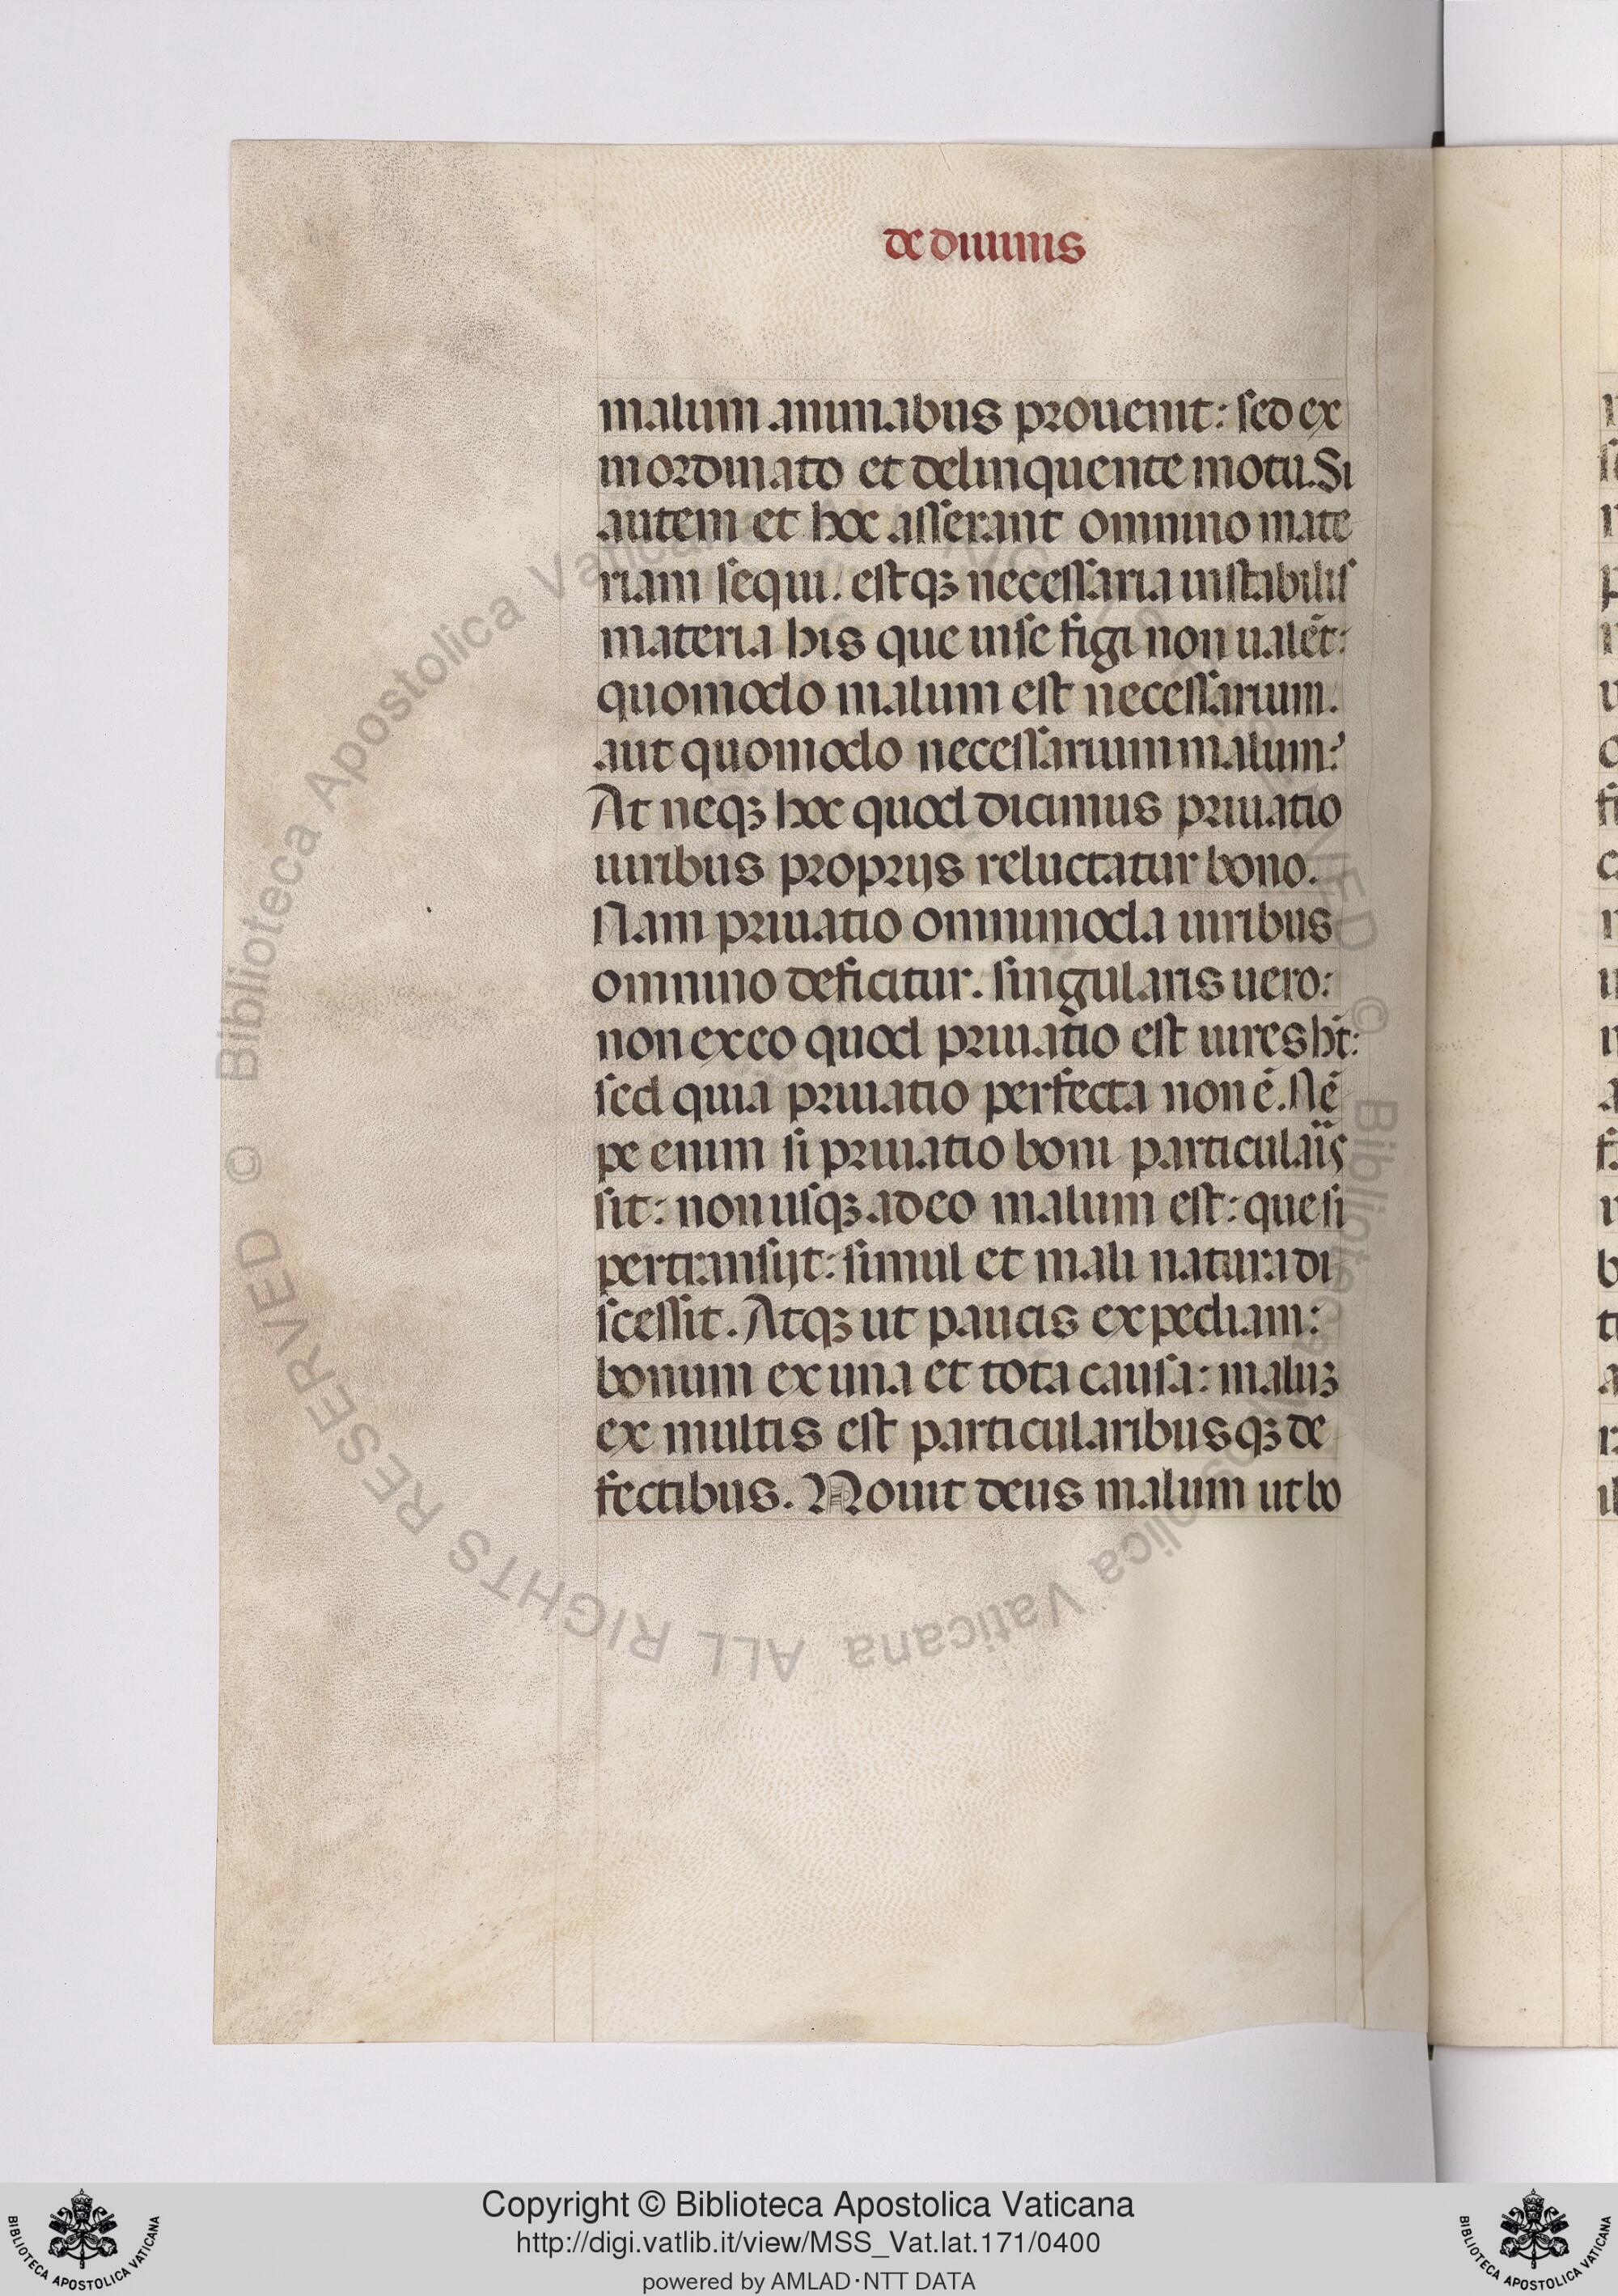 de diuinis
malum animabus prouenit: sed ex
inordinato et delinquente motu. Si
autem et hoc asserant omnino mate
riam sequi. estqꝫ necessaria instabilis
materia his que inse figi non ualēt:
quomodo malum est necessarium.
aut quomodo necessarium malum?
At neqꝫ hoc quod dicimus priuatio
uiribus proprijs reluctatur bono.
Nam priuatio omnimoda uiribus
omnino deficitur. singularis uero:
non ex eo quod priuatio est uires ht̄:
sed quia priuatio perfecta non ē. Nē
pe enim si priuatio boni particulaiis
sit: non usqꝫ adeo malum est: que si
pertransijt: simul et mali natura di
scessit. Atqꝫ ut paucis expediam:
bonum ex una et tota causa: maluꝫ
ex multis est particularibusqꝫ de
fectibus. Nouit deus malum ut bo
© Biblioteca Apostolica Vaticana
ALL RIGHTS RESERVED
Copyright © Biblioteca Apostolica Vaticana
http://digi.vatlib.it/view/MSS_Vat.lat.171/0400
powered by AMLAD·NTT DATA
BIBLIOTECA APOSTOLICA VATICANA
BIBLIOTECA APOSTOLICA VATICANA